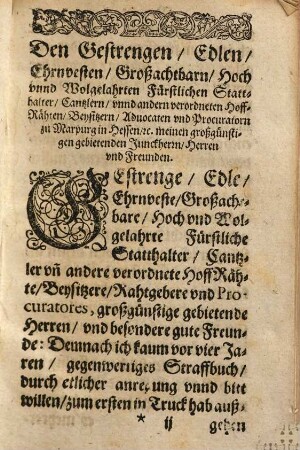 Den Gestrengen / Edlen /
Ehrnvesten / Großachtbarn / Hoch
vnnd Wolgelahrten Fürstlichen Statt-
halter / Cantzlern / vnnd andern verordneten Hoff-
Rähten / Beysitzern / Advocaten vnd Procuratorn
zu Marpurg in Hessen / ꝛc. meinen großgünsti-
gen gebietenden Junckherrn / Herren
vnd Freunden.
GEstrenge / Edle /
Ehrnveste / Großacht-
bare / Hoch vnd Wol-
gelahrte Fürstliche
Statthalter / Cantz-
ler vñ andere verordnete Hoff Räh-
te / Beysitzere / Rahtgebere vnd Pro-
curatores, großgünstige gebietende
Herren / vnd besondere gute Freun-
de: Demnach ich kaum vor vier Ja-
ren / gegenwertiges Straffbuch /
durch etlicher anregung vnnd bitt
willen / zum ersten in Truck hab auß-
* ij gehen